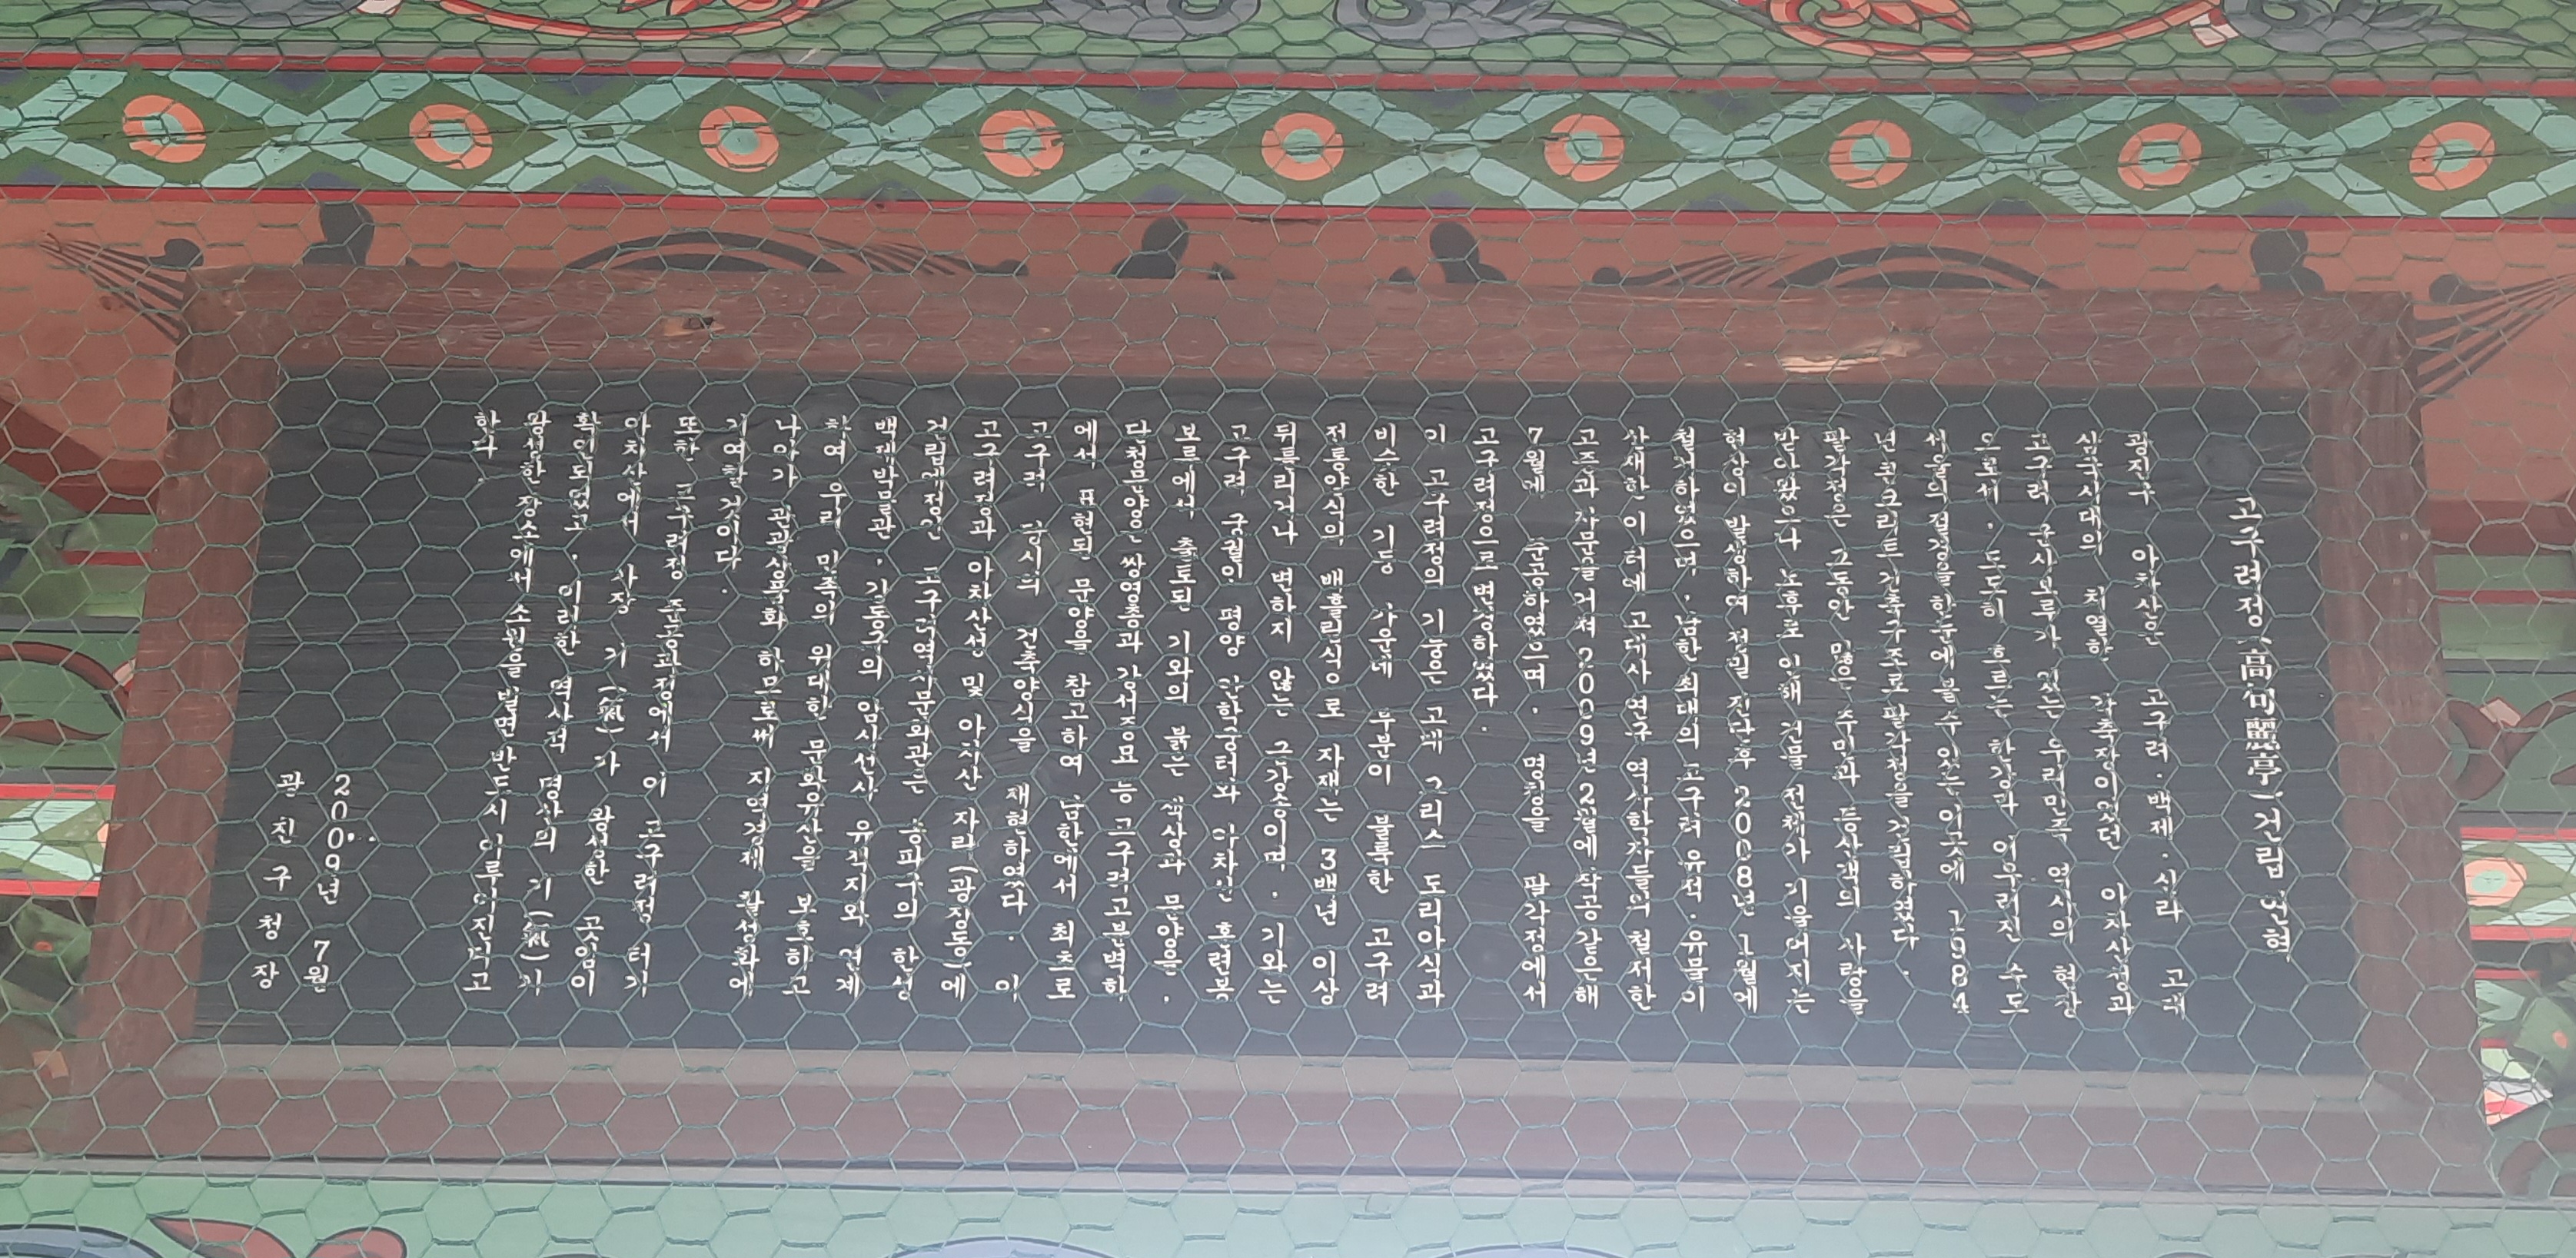 고구려정(高句麗亭)건립 연혁
광진구 아차산은 고구려·백제·신라 고대
삼국시대의 치열한 각축장이었던 아차산성과
고구려 군사보루가 있는 우리민족 역사의 현장
으로서, 도도히 흐르는 한강과 어우러진 수도
서울의 전경을 한눈에 볼 수 있는 이곳에 1984
년 콘크리트 건축구조로 팔각정을 건립하였다.
팔각정은 그동안 많은 주민과 등산객의 사랑을
받아왔으나 노후로 인해 건물 전체가 기울어지는
현상이 발생하여 정밀 진단후 2008년 1월에
철거하였으며, 남한 최대의 고구려 유적·유물이
산재한 이 터에 고대사 연구 역사학자들의 철저한
고증과 자문을 거쳐 2009년 2월에 착공 같은해
7월에 준공하였으며, 명칭을 팔각정에서
고구려정으로 변경하였다.
이 고구려정의 기둥은 고대 그리스 도리아식과
비슷한 기둥 가운데 부분이 불룩한 고구려
전통양식의 배흘림식으로 자재는 3백년 이상
뒤틀리거나 변하지 않는 금강송이며, 기와는
고구려 궁궐인 평양 안학궁터와 아차산 홍련봉
보루에서 출토된 기와의 붉은 색상과 문양을,
단청문양은 쌍영총과 강서중묘 등 고구려고분벽화
에서 표현된 문양을 참고하여 남한에서 최초로
고구려 당시의 건축양식을 재현하였다. 이
고구려정과 아차산성 및 아차산 자락(광장동)에
건립예정인 고구려역사문화관은 송파구의 한성
백제박물관, 강동구의 암사선사 유적지와 연계
하여 우리 민족의 위대한 문화유산을 보호하고
나아가 관광상품화 하므로써 지역경제 활성화에
기여할 것이다.
또한 고구려정 준공과정에서 이 고구려정 터가
아차산에서 가장 기(氣)가 왕성한 곳임이
확인되었고, 이러한 역사적 명산의 기(氣)가
왕성한 장소에서 소원을 빌면 반드시 이루어진다고
한다.
2009년 7월
광진구청장